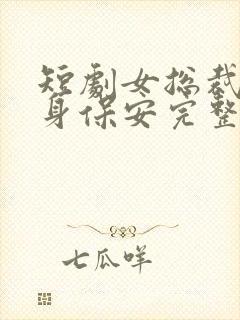 短劇女总裁
身保安完整
七瓜咩